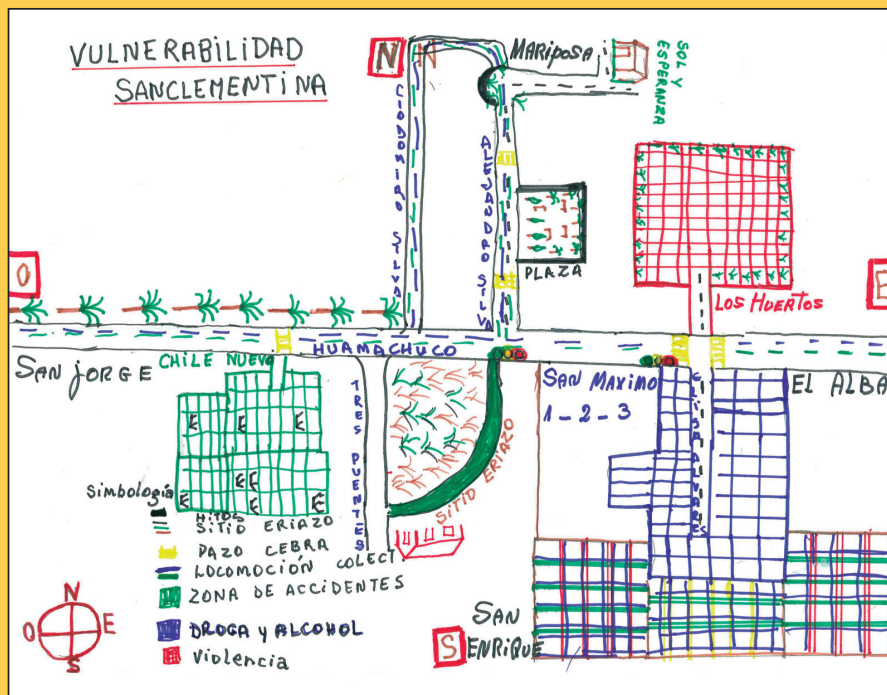 VULNERABILIDAD
SANCLEMENTINA
N
N
MARIPOSA
SOL Y
ESPERANZA
CLODOMIRO SILVA
ALEJANDRO SILVA
PLAZA
O
E
LOS HUERTOS
HUAMACHUCO
SAN JORGE
CHILE NUEVO
TRES PUENTES
SAN MAXIMO
1-2-3
EL ALBA
SITIO ERIAZO
E
E
E
E
E
E
E
E
Simbología
HITOS
SITIO ERIAZO
PAZO CEBRA
LOCOMOCIÓN COLECT.
ZONA DE ACCIDENTES
DROGA y ALCOHOL
Violencia
N
O
E
S
S
SAN
ENRIQUE